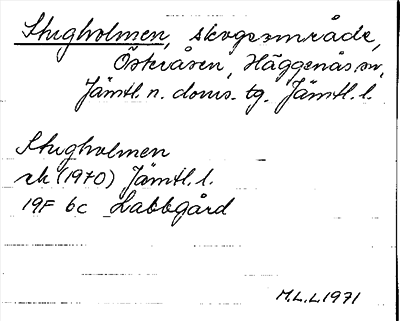 Stugholmen, skogsområde,
Österåsen, Häggenås sn,
Jämtl. n. doms. tg. Jämtl. l.
Stugholmen
rk (1970) Jämtl. l.
19F 6c Labbgård
M.L.L 1971